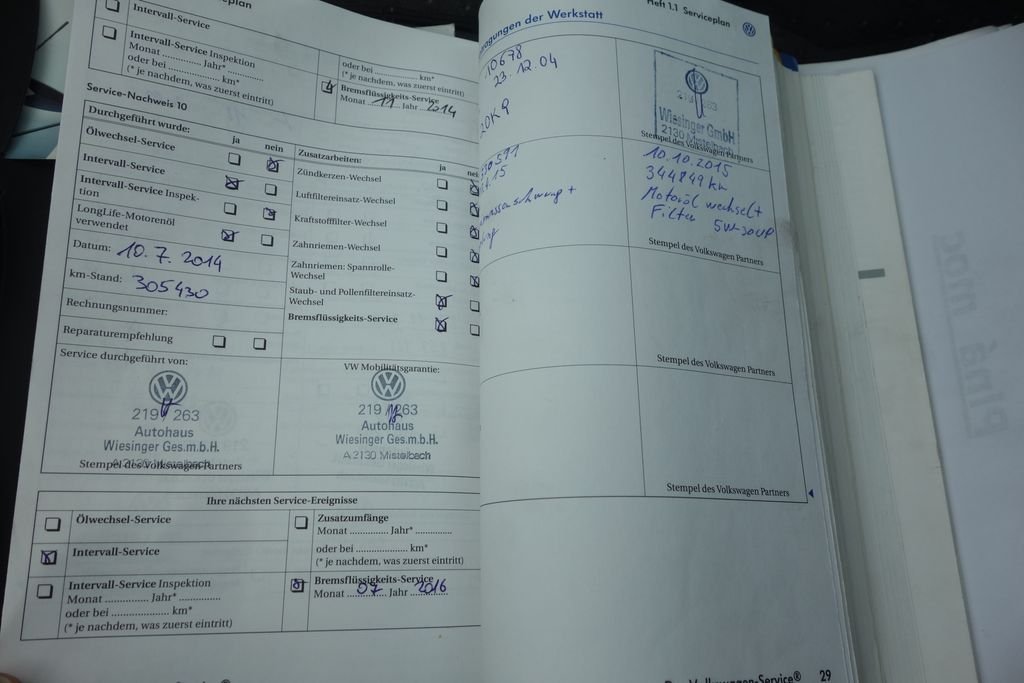 Serviceplan
Intervall-Service
Intervall-Service Inspektion
Monat ............. Jahr* .............
oder bei .................... km*
(* je nachdem, was zuerst eintritt)
oder bei .................... km*
(* je nachdem, was zuerst eintritt)
Bremsflüssigkeits-Service
Monat 11 Jahr 2014
Service-Nachweis 10
Durchgeführt wurde:
ja nein
Ölwechsel-Service
Intervall-Service
Intervall-Service Inspek-
tion
LongLife-Motorenöl
verwendet
Datum: 10. 7. 2014
km-Stand: 305430
Rechnungsnummer:
Reparaturempfehlung
Zusatzarbeiten:
ja
Zündkerzen-Wechsel
Luftfiltereinsatz-Wechsel
Kraftstofffilter-Wechsel
Zahnriemen-Wechsel
Zahnriemen: Spannrolle-
Wechsel
Staub- und Pollenfiltereinsatz-
Wechsel
Bremsflüssigkeits-Service
Service durchgeführt von:
219 263
Autohaus
Wiesinger Ges.m.b.H.
A 2130 Mistelbach
Stempel des Volkswagen Partners
VW Mobilitätsgarantie:
219 263
Autohaus
Wiesinger Ges.m.b.H.
A 2130 Mistelbach
Ihre nächsten Service-Ereignisse
Ölwechsel-Service
Intervall-Service
Intervall-Service Inspektion
Monat ............. Jahr* .............
oder bei .................... km*
(* je nachdem, was zuerst eintritt)
Zusatzumfänge
Monat ............. Jahr* .............
oder bei .................... km*
(* je nachdem, was zuerst eintritt)
Bremsflüssigkeits-Service
Monat 07 Jahr 2016
Heft 1.1 Serviceplan
der Werkstatt
10678
23.12.04
219 263
Wiesinger GmbH
2130 Mistelbach
Stempel des Volkswagen Partners
10.10.2015
344849 km
Motoröl wechsel +
Filter 5W-30
Stempel des Volkswagen Partners
Stempel des Volkswagen Partners
Stempel des Volkswagen Partners
29